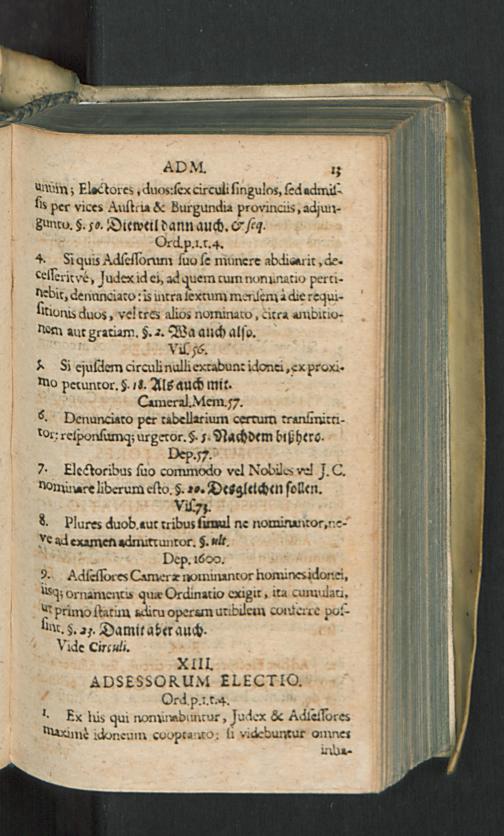 ADM. 13
unum; Electores, duos: sex circuli singulos, sed admis-
sis per vices Austria & Burgundia provinciis, adjun-
gunto. §. 50. Dieweil dann auch. & seq.
Ord.p.1.t.4.
4. Si quis Adsessorum suo se munere abdicarit, de-
cesseritvé, Judex id ei, ad quem tum nominatio perti-
nebit, denunciato: is intra sextum mensem à die requi-
sitionis duos, vel tres alios nominato, citra ambitio-
nem aut gratiam. §. 2. Wa auch also.
Vis.56.
5. Si ejusdem circuli nulli extabunt idonei, ex proxi-
mo petuntor. §. 18. Als auch mit.
Cameral.Mem.57.
6. Denunciato per tabellarium certum transmitti-
tor; responsumq; urgetor. §. 5. Nachdem bißhero.
Dep.57.
7. Electoribus suo commodo vel Nobiles vel J. C.
nominare liberum esto. §. 20. Desgleichen sollen.
Vis.73.
8. Plures duob. aut tribus simul ne nominantor, ne-
ve ad examen admittuntor. §. ult.
Dep. 1600.
9. Adsessores Cameræ nominantor homines idonei,
iisq; ornamentis quæ Ordinatio exigit, ita cumulati,
ut primo statim aditu operam utibilem conferre pos-
sint. §. 23. Damit aber auch.
Vide Circuli.
XIII.
ADSESSORUM ELECTIO.
Ord.p.1.t.4.
1. Ex his qui nominabuntur, Judex & Adsessores
maximè idoneum cooptanto; si videbuntur omnes
inha-